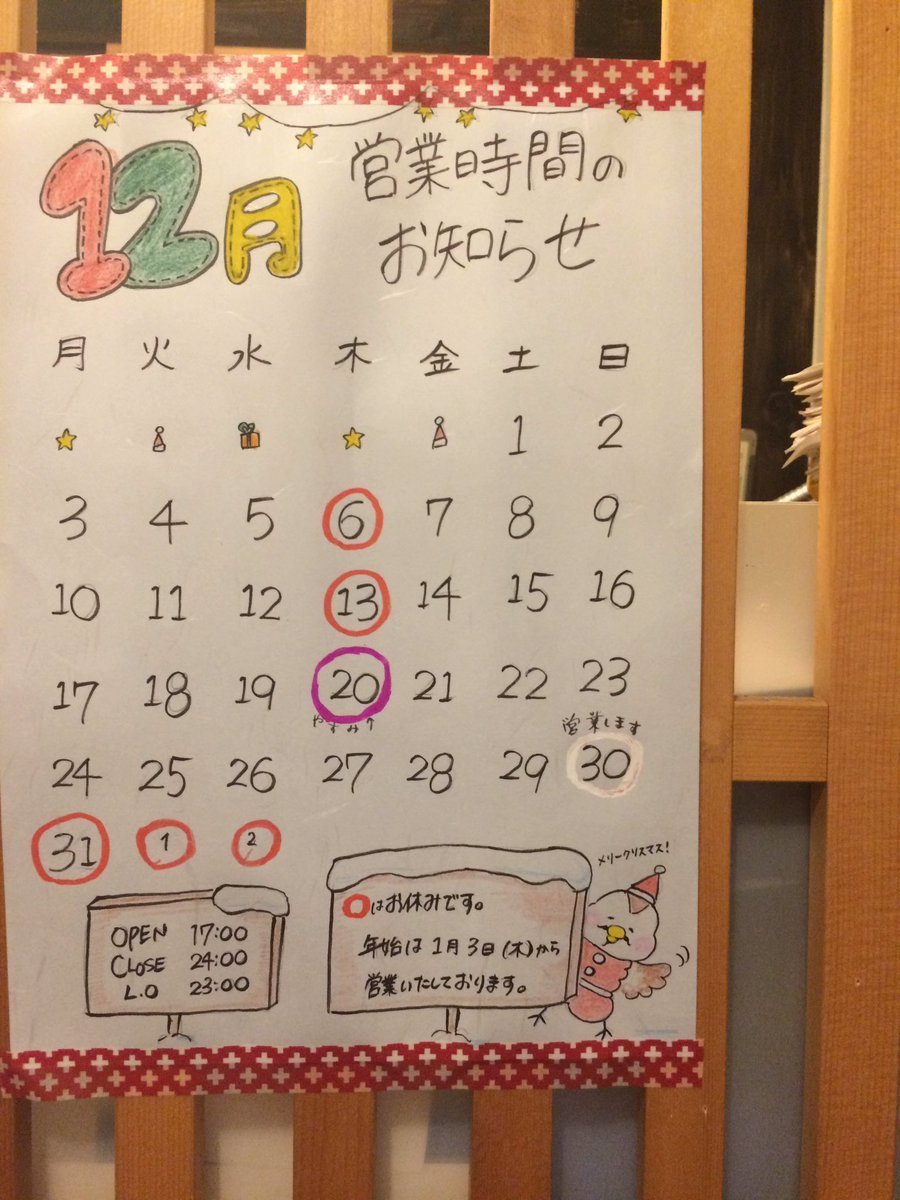 12月
営業時間の
お知らせ
月 火 水 木 金 土 日
1 2
3 4 5 6 7 8 9
10 11 12 13 14 15 16
17 18 19 20 21 22 23
やすみ 営業します
24 25 26 27 28 29 30
31 1 2
メリークリスマス!
OPEN 17:00
CLOSE 24:00
L.O 23:00
○はお休みです。
年始は1月3日(木)から
営業いたしております。